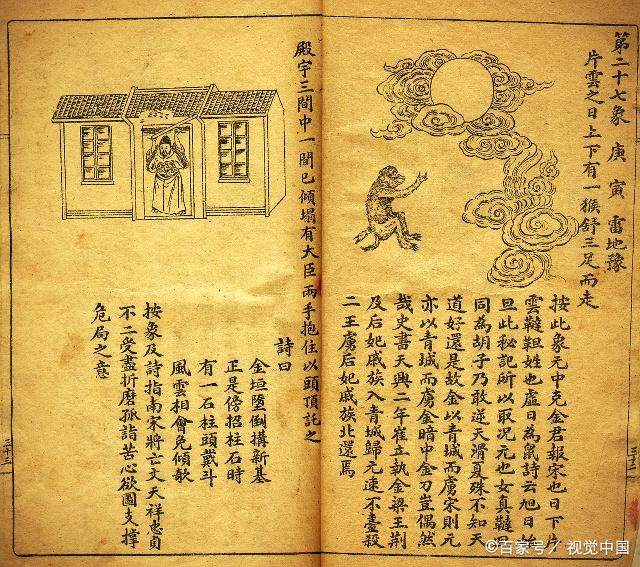 第二十七象 庚 寅 雷地豫
片雲之日上下有一猴舒三足而走
按此象元中克金君報宋也日下片
雲韃靼姓也虛日為鼠詩云旭日始
旦此秘記所以取况元也女真韃
同為胡子乃敢逆天滑夏殊不知天
道好還是故金以青城而虜宋則元
亦以青城而虜金暗中金刀豈偶然
哉史書天興二年崔立執金梁王荆
及后妃戚族入青城歸元速不臺殺
二王虜后妃戚族北還焉
殿宇三間中一間已傾塌有大臣兩手抱住以頭頂託之
詩曰
金垣墮倒搆新基
正是傍招柱石時
有一石柱頭戴斗
風雲相會免傾欹
按象及詩指南宋將亡文天祥忠貞
不二受盡折磨孤詣苦心欲圖支撐
危局之意
三十三
©百家号/视觉中国